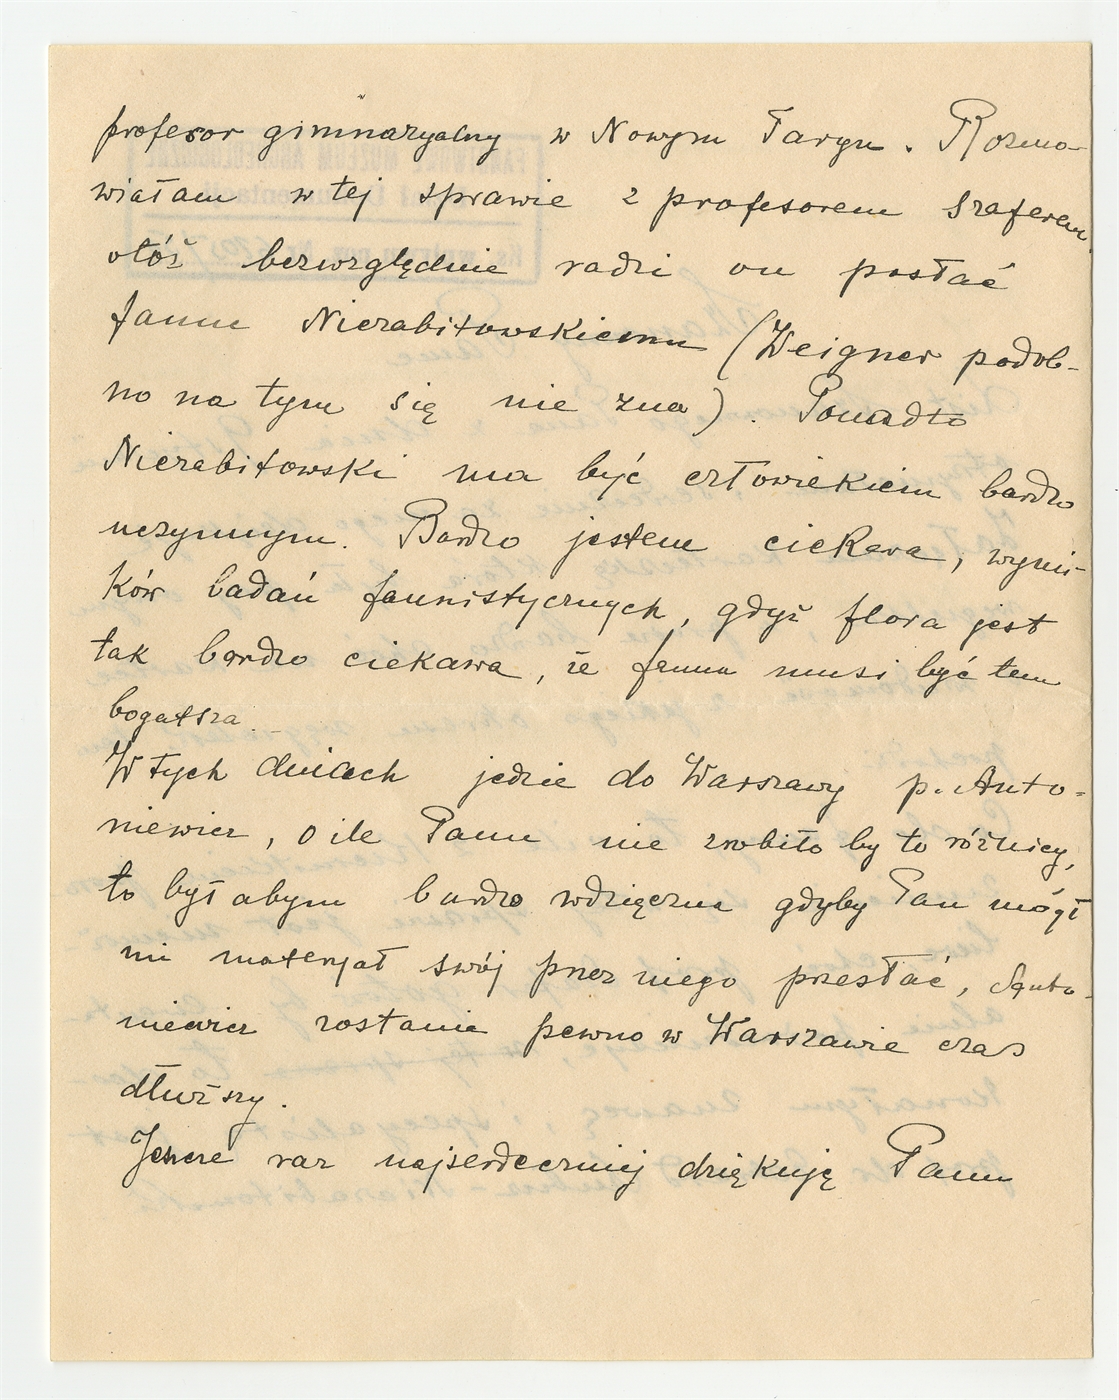 profesor gimnazyalny w Nowym Targu. Rozmo-
wiałam w tej sprawie z profesorem Szaferem
otóż bezwzględnie radzi on posłać
faunę Niezabitowskiemu (Weigner podob-
no na tym się nie zna). Ponadto
Niezabitowski ma być człowiekiem bardzo
uczynnym. Bardzo jestem ciekawa, wyni-
ków badań faunistycznych, gdyż flora jest
tak bardzo ciekawa, że fauna musi być tem
bogatsza.
W tych dniach jedzie do Warszawy p. Anto-
niewicz, o ile Panu nie zrobiło by to różnicy,
to był abym bardzo wdzięczna gdyby Pan mógł
mi materjał swój przez niego przesłać,
niewicz zostanie pewno w Warszawie czas
dłuższy.
Jeszcze raz najserdeczniej dziękuję Panu